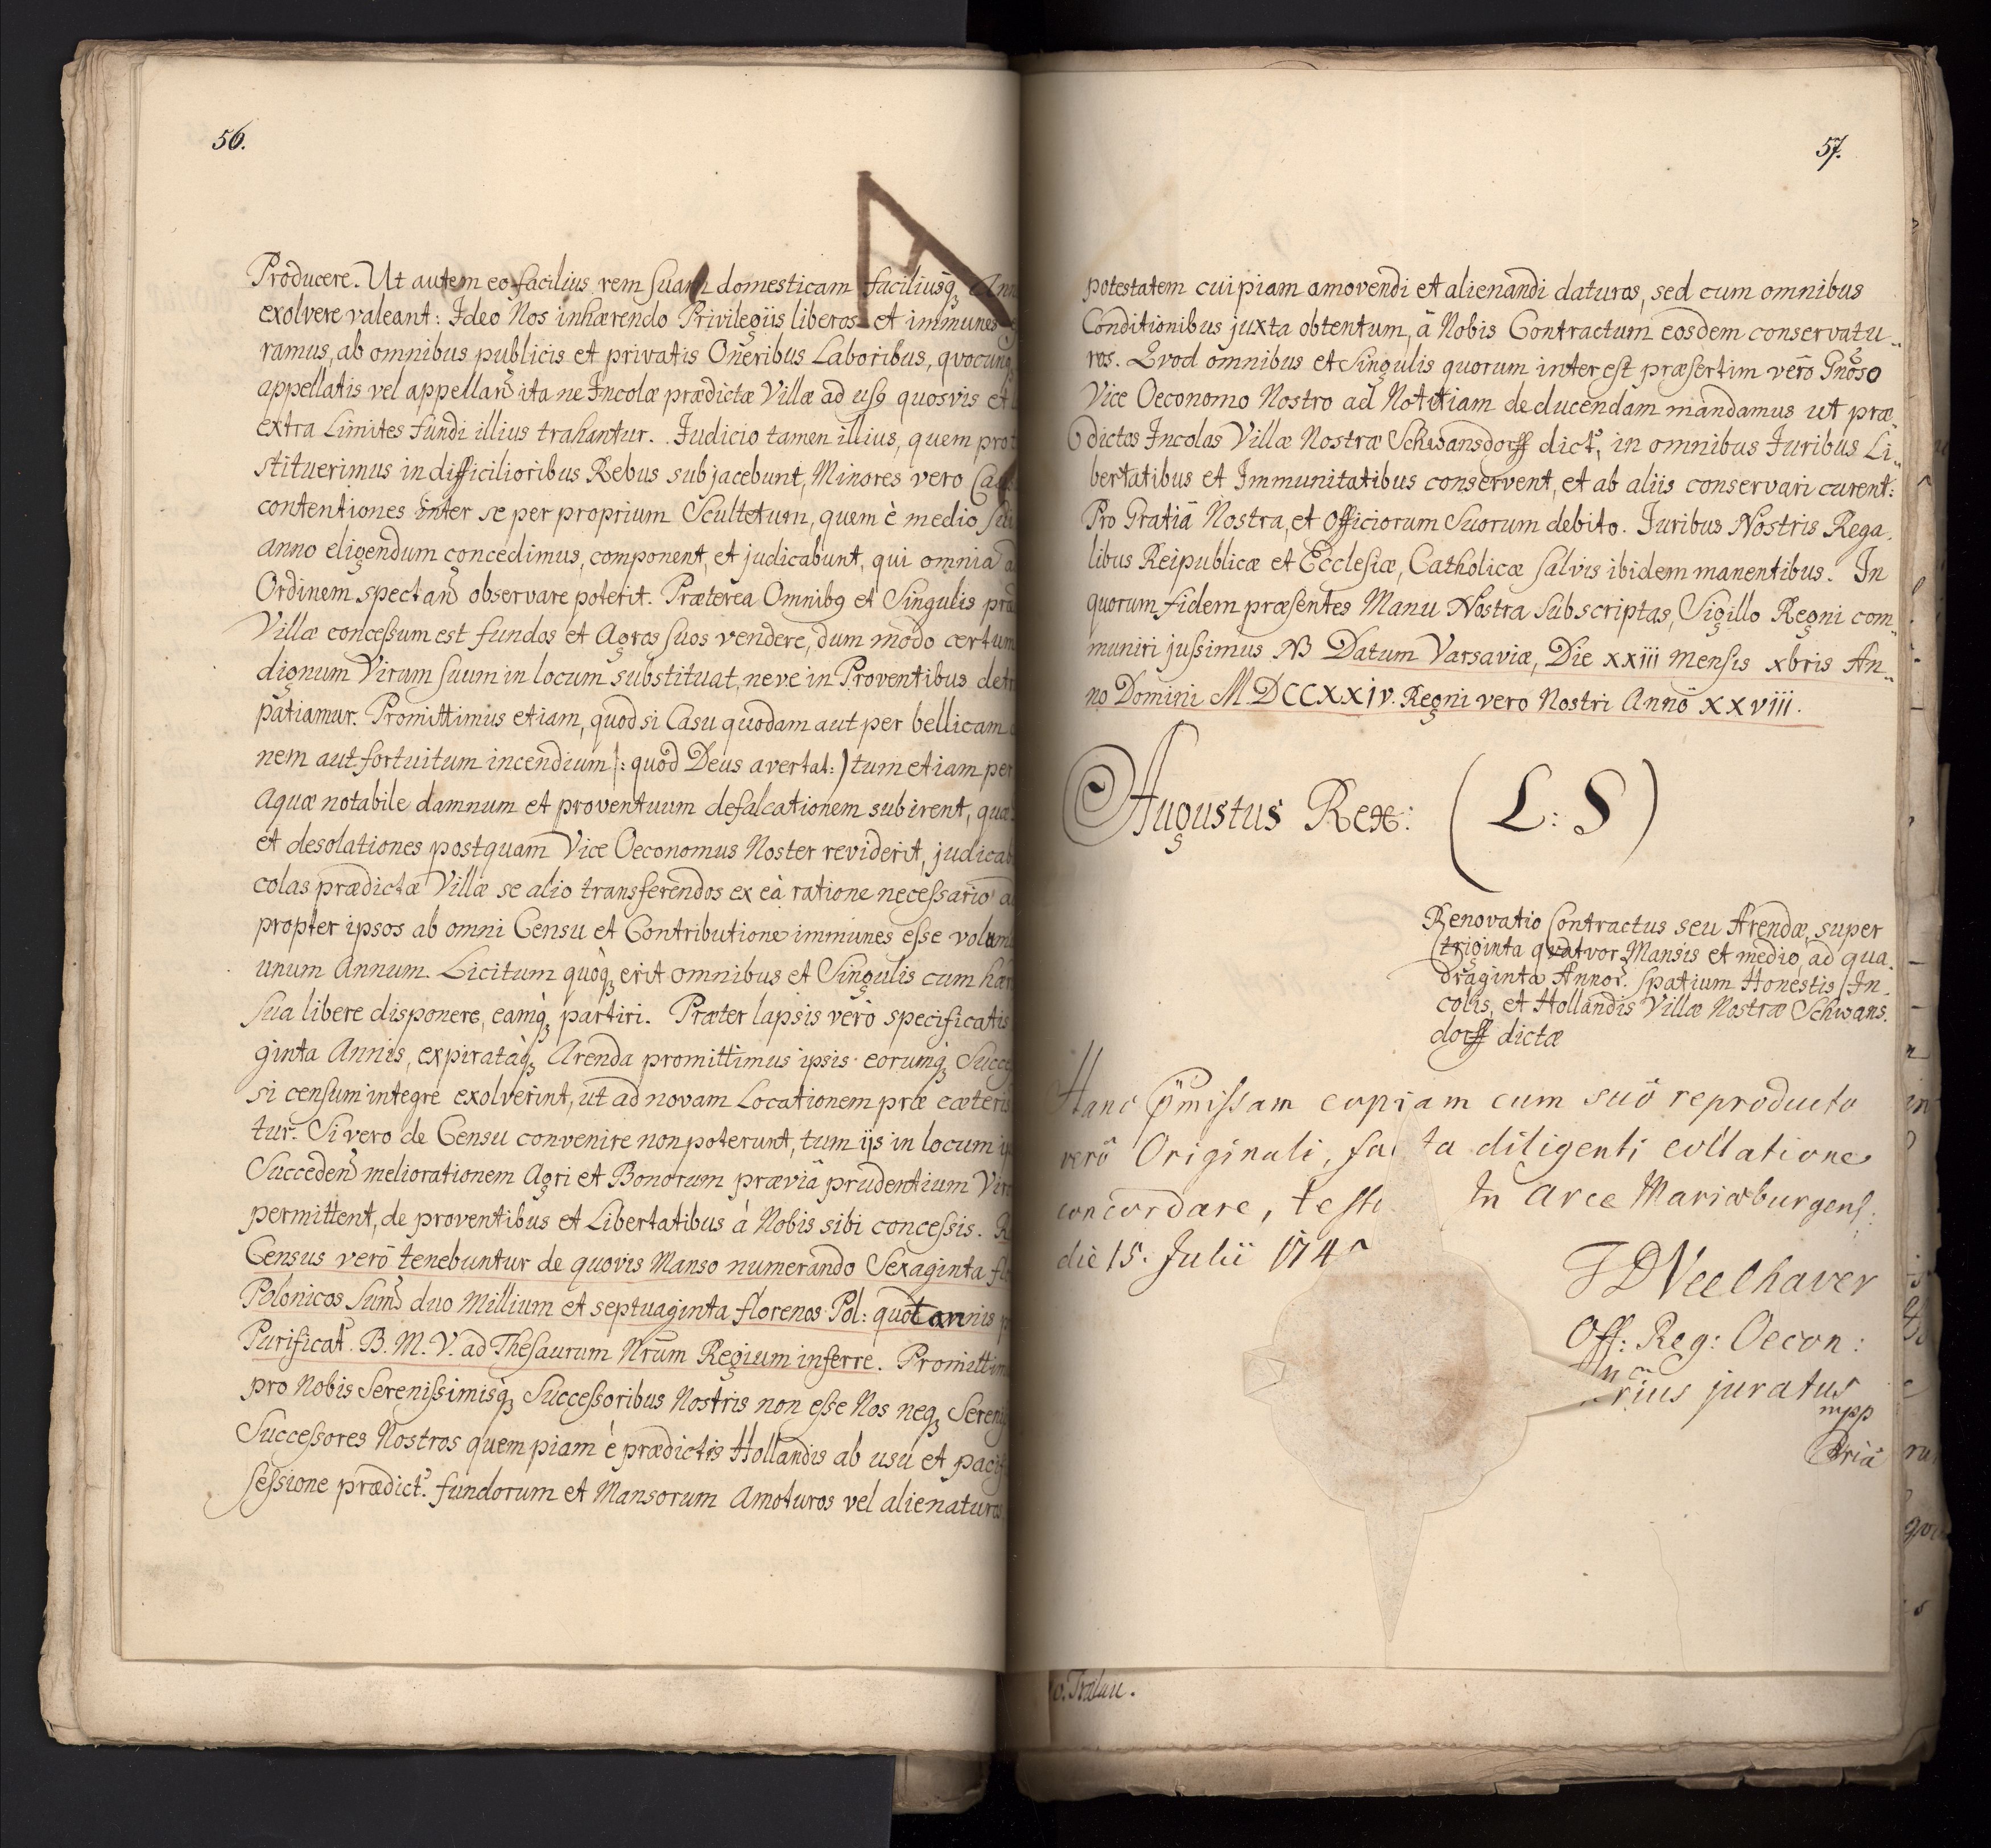 56.
Producere. Ut autem eo facilius rem suam domesticam faciliusq̢
exolvere valeant: Ideo Nos inhærendo Privilegiis liberos et immunes
ramus, ab omnibus publicis et privatis Oneribus Laboribus, qvocunq̢
appellatis vel appellan̄d ita ne Incolæ prædictæ Villæ ad usꝯ quosvis et
extra Limites fundi illius trahantur. Judicio tamen illius, quem
stituerimus in difficilioribus Rebus subjacebunt, Minores vero
contentiones inter se per proprium Scultetum, quem è medio
anno eligendum concedimus, component, et judicabunt, qui omnia
Ordinem spectan̄d observare poterit. Præterea Omnibꝯ et Singulis
Villæ concessum est fundos et Agros suos vendere, dum modo certum
dignum Virum suum in locum substituat, neve in Proventibus
patiamur. Promittimus etiam, quod si Casu quodam aut per bellicam
nem aut fortuitum incendium /: quod Deus avertat:) tum etiam per
Aquæ notabile damnum et proventuum defalcationem subirent,
et desolationes postquam Vice Oeconomus Noster reviderit,
colas prædictæ Villæ se alio transferendos ex eà ratione necessario
propter ipsos ab omni Censu et Contributione immunes esse
unum Annum. Licitum quoq̢ erit omnibus et Singulis cum
sua libere disponere, eamq̢ partiri. Præter lapsis verò specificatis
ginta Annis, expiratâq̢ Arenda promittimus ipsis eorumq̢
si censum integre exolverint, ut ad novam Locationem præ cæteris
tur. Si vero de Censu convenire non poterunt, tum ijs in locum
Succeden̄d meliorationem Agri et Bonorum præviâ prudentium
permittent, de proventibus et Libertatibus à Nobis sibi concessis.
Census verò tenebuntur de quovis Manso numerando Sexaginta
Polonicos Sum̄d duo Millium et septuaginta florenos Pol: quotannis
Purificat. B. M. V. ad Thesaurum Nrum Regium inferre.
pro Nobis Serenissimisq̢ Successoribus Nostris non esse Nos neq̢
Successores Nostros quem piam è prædictis Hollandis ab usu et
sessione prædict. fundorum et Mansorum Amoturos vel
57.
potestatem cuipiam amovendi et alienandi daturos, sed cum omnibus
Conditionibus juxta obtentum, â Nobis Contractum eosdem conservatu-
ros. Qvod omnibus et Singulis quorum interest præsertim verò Gnoso
Vice Oeconomo Nostro ad Notitiam deducendam mandamus ut præ-
dictos Incolas Villæ Nostræ Schwansdorff dict, in omnibus Juribus Li-
bertatibus et Immunitatibus conservent, et ab aliis conservari curent:
Pro Gratiâ Nostra, et Officiorum Suorum debito. Juribus Nostris Rega-
libus Reipublicæ et Ecclesiæ, Catholicæ salvis ibidem manentibus. In
quorum fidem præsentes Manu Nostra Subscriptas, Sigillo Regni com-
muniri jussimus NB Datum Varsaviæ, Die xxiii Mensis xbris An-
no Domini M.DCCXXIV. Regni vero Nostri Anno XXVIII.
Augustus Rex: (L: S)
Renovatio Contractus seu Arendæ, super
triginta qvatvor Mansis et medio, ad qua-
draginta Annor. spatium Honestis In-
colis, et Hollandis Villæ Nostræ Schwans-
dorff dictæ
Hanc p̄missam copiam cum suô reproducto
verô Originali, facta diligenti collatione
concordare, testo In Arce Mariæburgens:
die 15. Julii 174
JDVeelhaver
Off: Reg: Oecon:
rius juratus
mpp